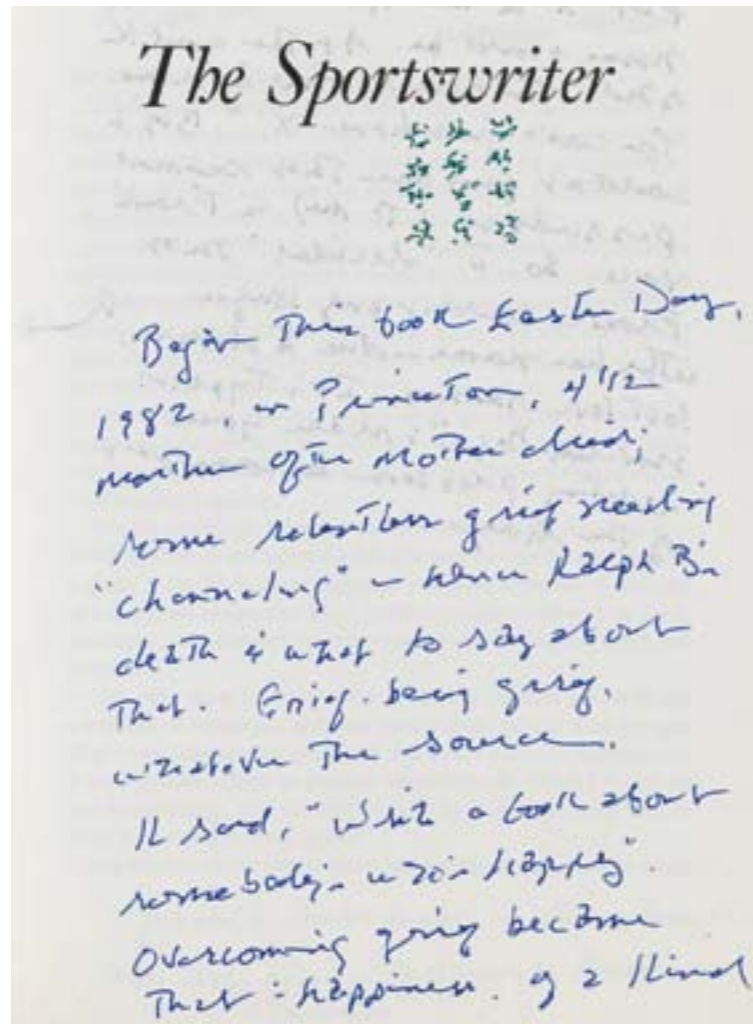 The Sportswriter
Began this book Easter Day,
1982, in Princeton, 4 1/2
months after mother died;
some relentless grief needing
"channeling" – hence Ralph B's
death & what to say about
that. Grief being grief,
whatever the source.
K said, "write a book about
somebody who's happy".
Overcoming grief became
that: happiness of a kind